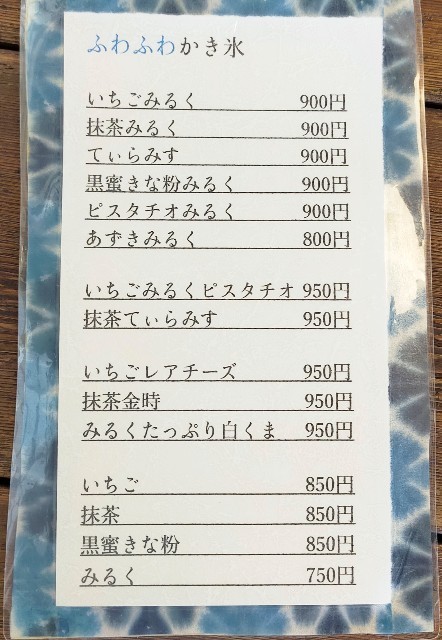 ふわふわかき氷
いちごみるく 900円
抹茶みるく 900円
てぃらみす 900円
黒蜜きな粉みるく 900円
ピスタチオみるく 900円
あずきみるく 800円
いちごみるくピスタチオ 950円
抹茶てぃらみす 950円
いちごレアチーズ 950円
抹茶金時 950円
みるくたっぷり白くま 950円
いちご 850円
抹茶 850円
黒蜜きな粉 850円
みるく 750円